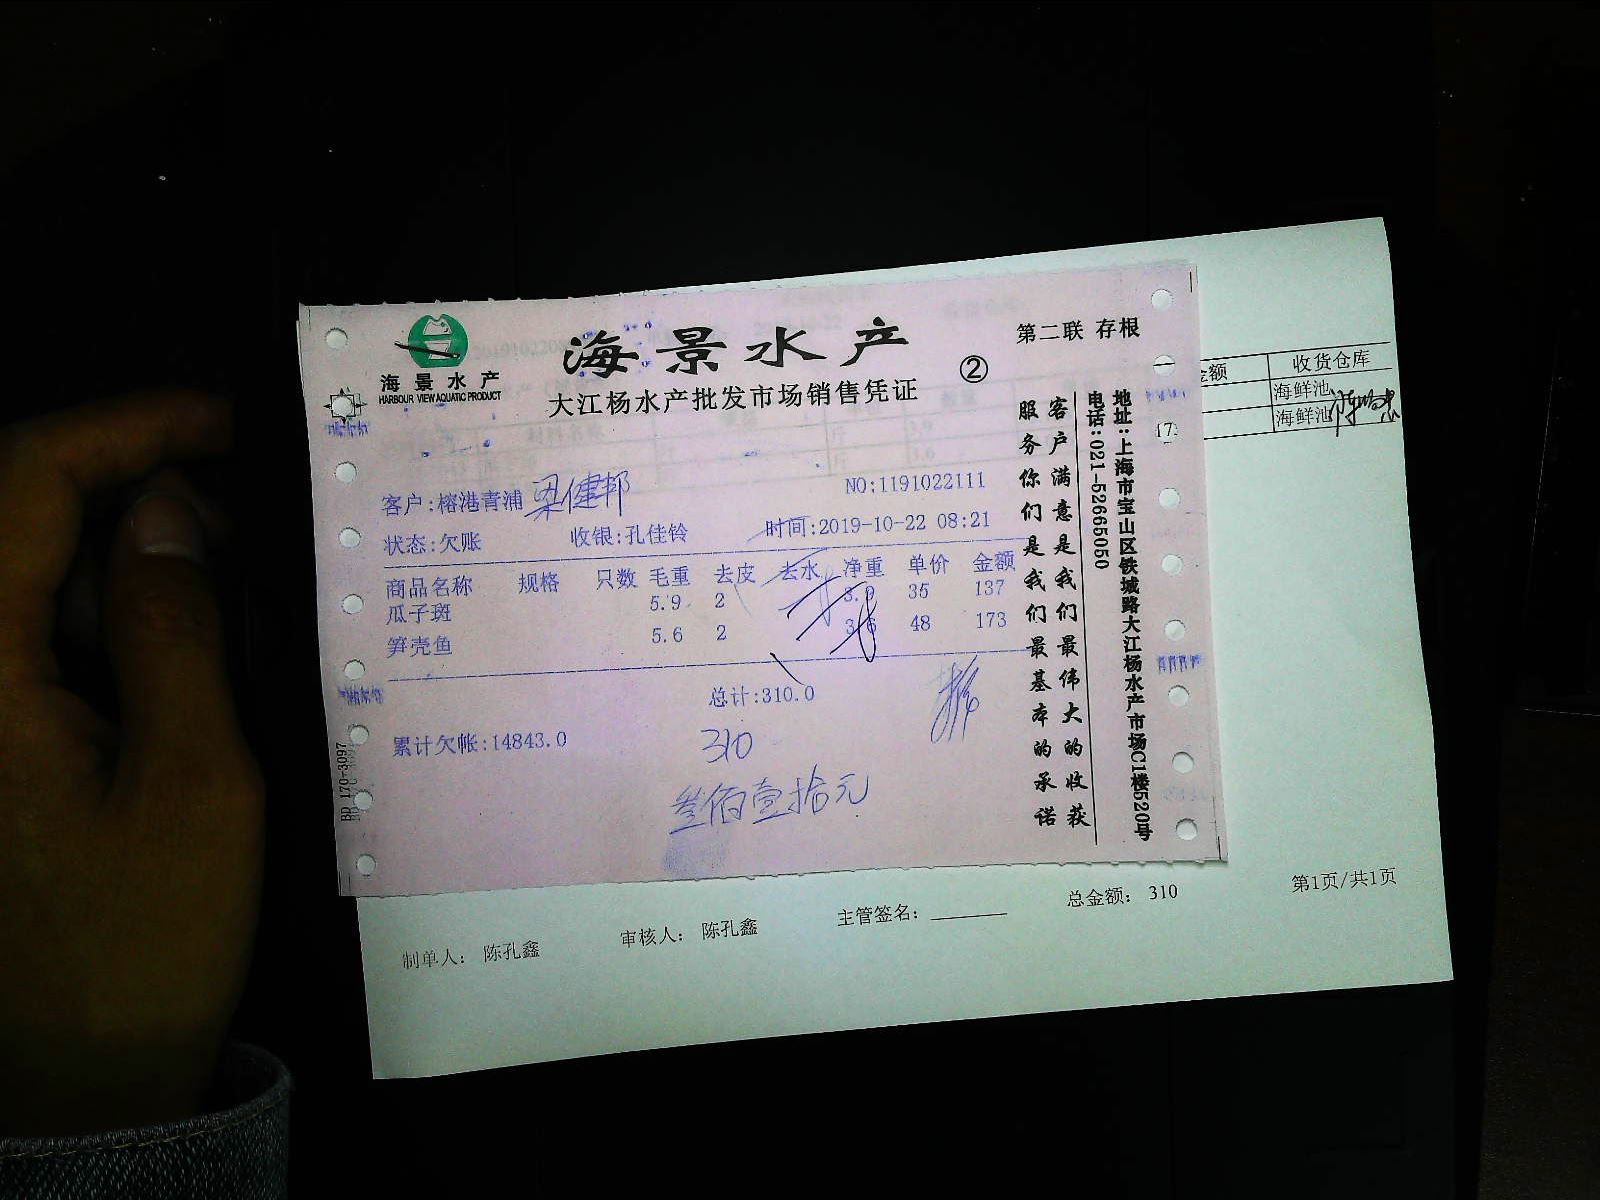 海景水产
HARBOUR VIEW AQUATIC PRODUCT
海景水产
大江杨水产批发市场销售凭证
②
第二联 存根
客户:榕港青浦 梁健邦
NO:1191022111
状态:欠账 收银:孔佳铃 时间:2019-10-22 08:21
商品名称 规格 只数 毛重 去皮 去水 净重 单价 金额
瓜子斑 5.9 2 3.9 35 137
笋壳鱼 5.6 2 3.6 48 173
总计:310.0
累计欠帐:14843.0
310
叁佰壹拾元
客户满意是我们最伟大的收获
服务你们是我们最基本的承诺
地址:上海市宝山区铁城路大江杨水产市场C1楼520号
电话:021-52665050
BD 170-3097
金额 收货仓库
海鲜池
17. 海鲜池
制单人: 陈孔鑫 审核人: 陈孔鑫 主管签名: 总金额: 310 第1页/共1页